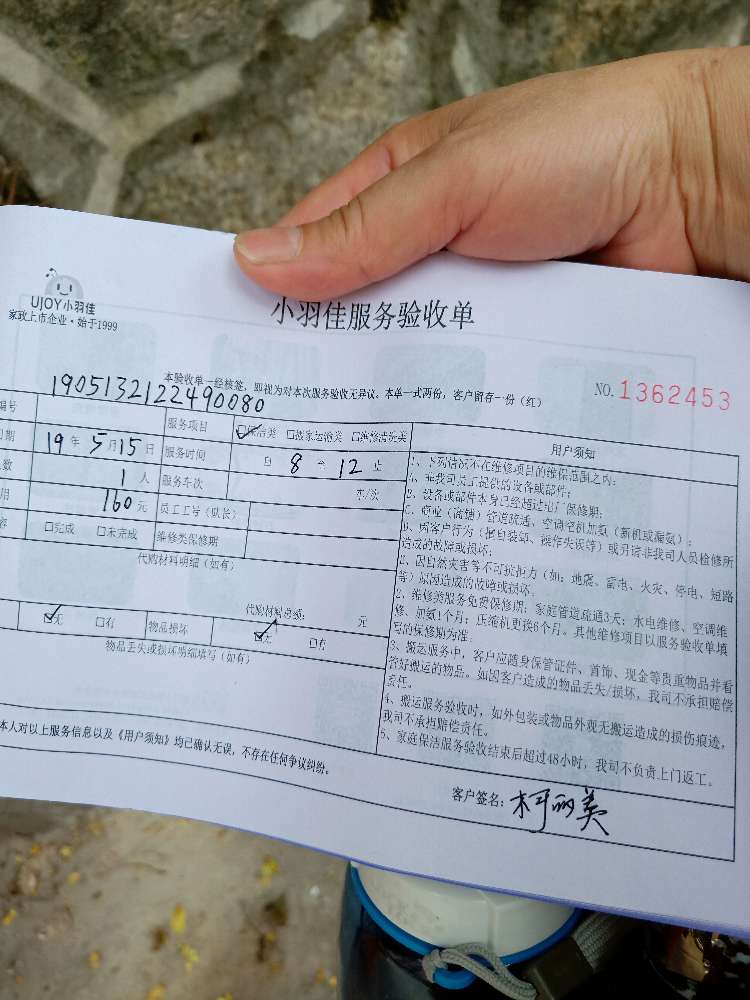 UJOY小羽佳
家政上市企业·始于1999
小羽佳服务验收单
本验收单一经核签，即视为对本次服务验收无异议。本单一式两份，客户留存一份（红）
NO.1362453
编号 1905132122490080 服务项目 ☑保洁类 □搬家运输类 □维修清洗类
日期 19年5月15日 服务时间 自 8 至 12 止
数 1人 服务车次 车/次
用 160元 员工工号（队长）
容 □完成 □未完成 维修类保修期
代购材料明细（如有）
代购材料总额： 元
☑无 □有 物品损坏 ☑无 □有
物品丢失或损坏明细填写（如有）
本人对以上服务信息以及《用户须知》均已确认无误，不存在任何争议纠纷。
用户须知
1、下列情况不在维修项目的维保范围之内：
A、非我司员工提供的设备或部件；
B、设备或部件本身已经超过出厂保修期；
管道疏通，空调空机加氨（新机或漏氨）；
因客户行为（擅自装卸、操作失误等）或另请非我司人员检修所
造成的故障或损坏；
因自然灾害等不可抗拒力（如：地震、雷电、火灾、停电、短路
等）原因造成的故障或损坏。
2、维修类服务免费保修期：家庭管道疏通3天；水电维修、空调维
修、加氨1个月；压缩机更换6个月。其他维修项目以服务验收单填
写的保修期为准。
3、搬运服务中，客户应随身保管证件、首饰、现金等贵重物品并看
管好搬运的物品。如因客户造成的物品丢失/损坏，我司不承担赔偿
责任。
4、搬运服务验收时，如外包装或物品外观无搬运造成的损伤痕迹，
我司不承担赔偿责任。
5、家庭保洁服务验收结束后超过48小时，我司不负责上门返工。
客户签名：柯丽美